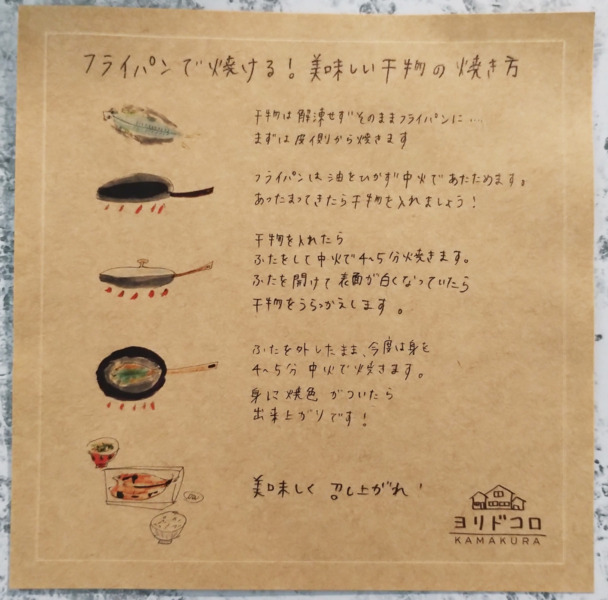 フライパンで焼ける！美味しい干物の焼き方
干物は解凍せずそのままフライパンに…
まずは皮側から焼きます
フライパンは油をひかず中火であたためます。
あったまってきたら干物を入れましょう！
干物を入れたら
ふたをして中火で4〜5分焼きます。
ふたを開けて表面が白くなっていたら
干物をうらっかえします。
ふたを外したまま、今度は身を
4〜5分中火で焼きます。
身に焼色がついたら
出来上がりです！
美味しく召し上がれ！
ヨリドコロ
KAMAKURA